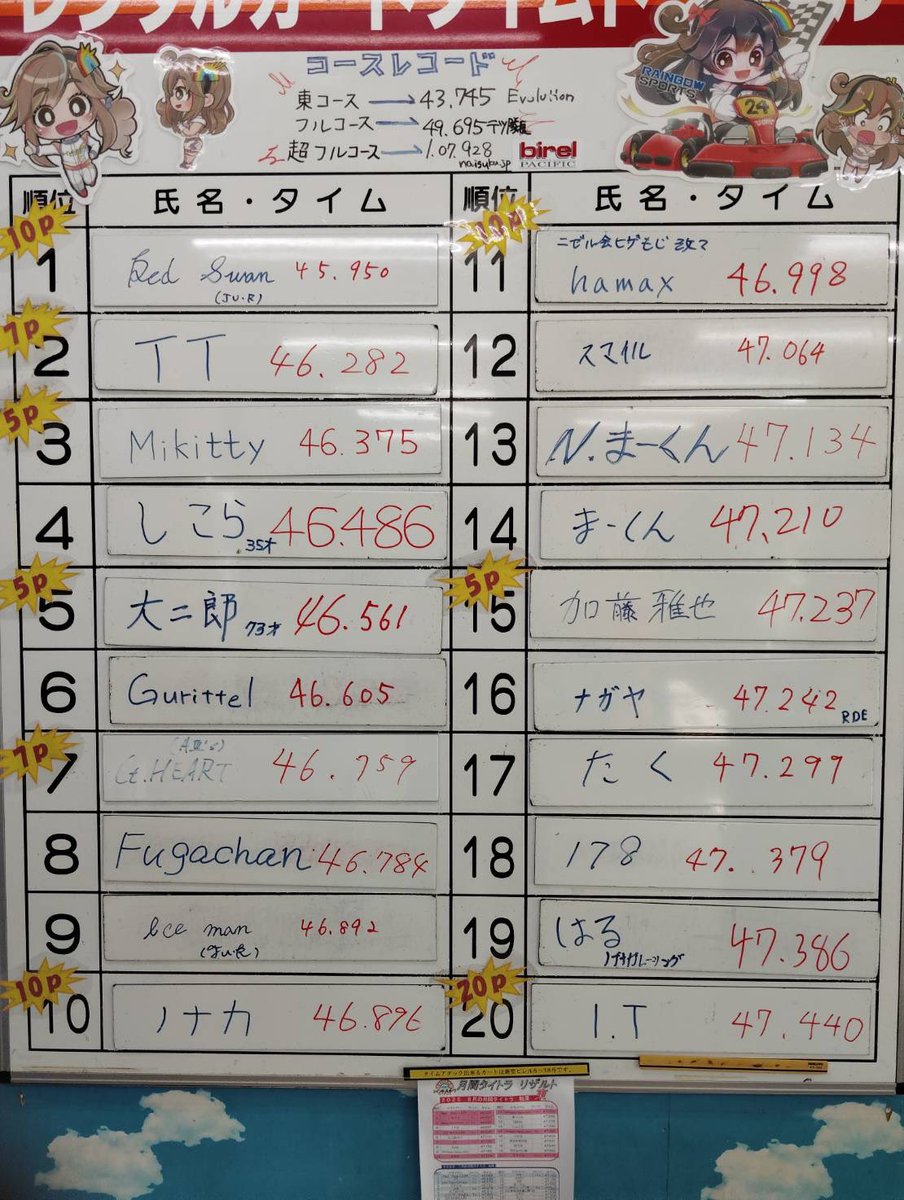 コースレコード
東コース → 43.745 Evolution
フルコース → 49.695
超フルコース → 1.07.928
naisuku.jp
birel
PACIFIC
RAINBOW
SPORTS
24
順位 氏名・タイム
10P
1 Red Swan 45.950
(JU.R)
7P
2 TT 46.282
5P
3 Mikitty 46.375
4 しこら 35才 46.486
5P
5 大二郎 73才 46.561
6 Gurittel 46.605
7P
7 Ct.HEART 46.759
8 Fugachan 46.784
9 Ice man 46.892
10P
10 ノナカ 46.896
順位 氏名・タイム
11 ニゼル会ヒゲもじ改マ
hamax 46.998
12 スマイル 47.064
13 N.まーくん 47.134
14 まーくん 47.210
5P
15 加藤雅也 47.237
16 ナガヤ 47.242 RDE
17 たく 47.297
18 178 47.379
19 はる 47.386
20P
20 I.T 47.440
月間タイトラ リザルト